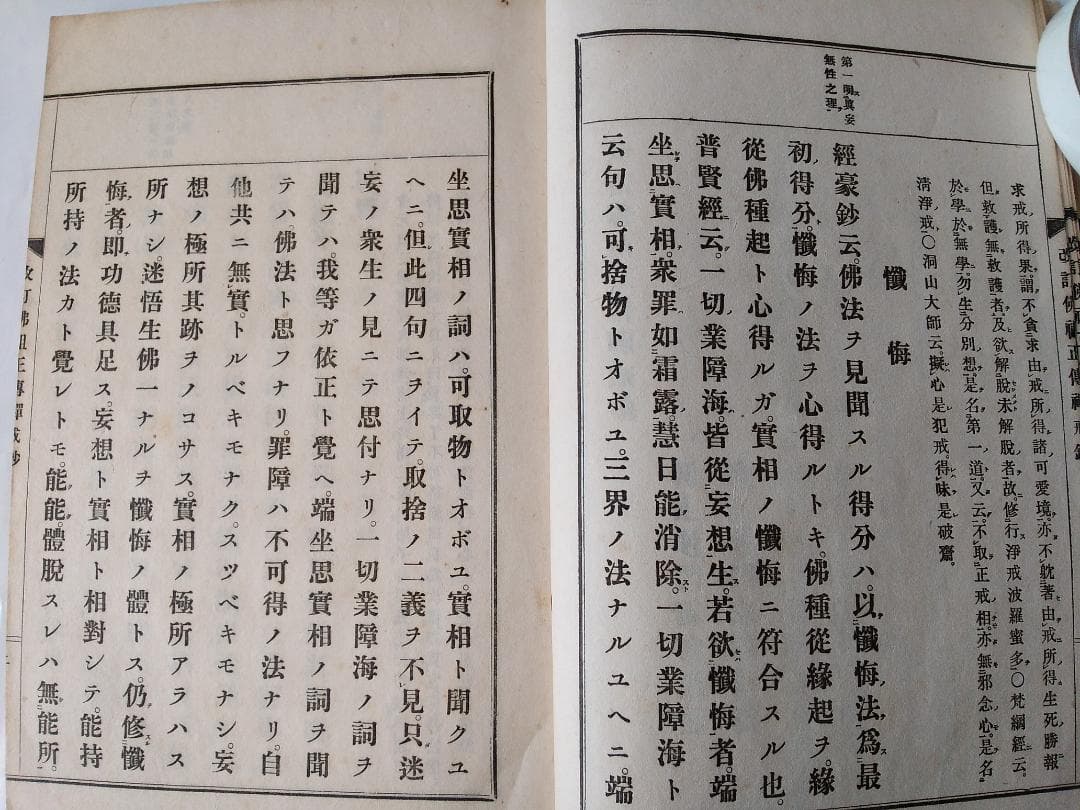 求戒所得果。謂不貪求由戒所得諸可愛境。亦不躭著由戒所得生死勝報
但救護無救護者及欲解脫未解脫者故。修行淨戒波羅蜜多〇梵綱經云。
於學於無學。勿生分別想。是名第一道。又云。不取正戒相。亦無邪念心。是名
淸淨戒〇洞山大師云。擬心是犯戒。得味是破齋。
懺悔
第一明眞妄
無性之理
經豪鈔云。佛法ヲ見聞スル得分ハ。以懺悔法爲最
初得分。懺悔ノ法ヲ心得ルトキ。佛種從緣起ヲ。緣
從佛種起ト心得ルガ。實相ノ懺悔ニ符合スル也。
普賢經云。一切業障海。皆從妄想生。若欲懺悔者端
坐思實相。衆罪如霜露。慧日能消除。一切業障海ト
云句ハ。可捨物トオボユ。三界ノ法ナルユヘニ。端
坐思實相ノ詞ハ。可取物トオボユ。實相ト聞クユ
ヘニ。但此四句ニヲイテ。取捨ノ二義ヲ不見。只迷
妄ノ衆生ノ見ニテ思付ナリ。一切業障海ノ詞ヲ
聞テハ。我等ガ依正ト覺ヘ。端坐思實相ノ詞ヲ聞
テハ。佛法ト思フナリ。罪障ハ不可得ノ法ナリ。自
他共ニ無實。トルベキモナク。スツベキモナシ。妄
想ノ極所其跡ヲノコサス。實相ノ極所アラハス
所ナシ。迷悟生佛一ナルヲ懺悔ノ體トス。仍修懺
悔者。卽功德具足ス。妄想ト實相ト相對シテ。能持
所持ノ法カト覺レトモ。能能體脫スレハ無能所。